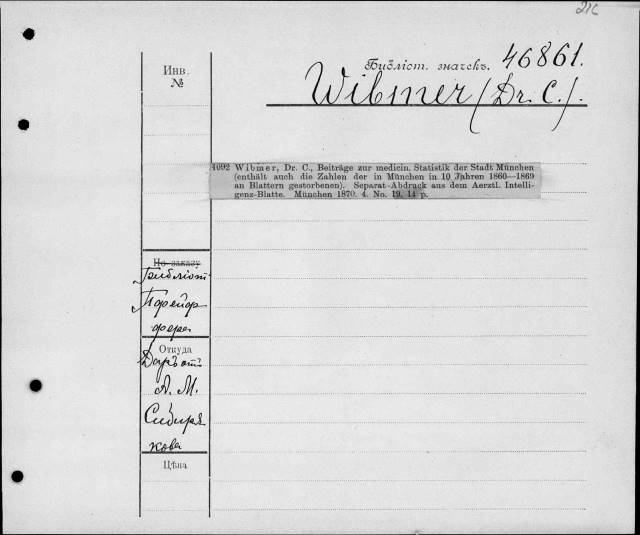 216
Инв.
№
Библіот. значекъ. 46861.
Wibmer (Dr. C.).
4092 Wibmer, Dr. C., Beiträge zur medicin. Statistik der Stadt München
(enthält auch die Zahlen der in München in 10 Jahren 1860—1869
an Blattern gestorbenen). Separat-Abdruck aus dem Aerztl. Intelli-
genz-Blatte. München 1870. 4. No. 19, 14 p.
По заказу
Библіот.
Пфейф
фера
Откуда
Даръ отъ
А. М.
Сибиря
кова
Цѣна